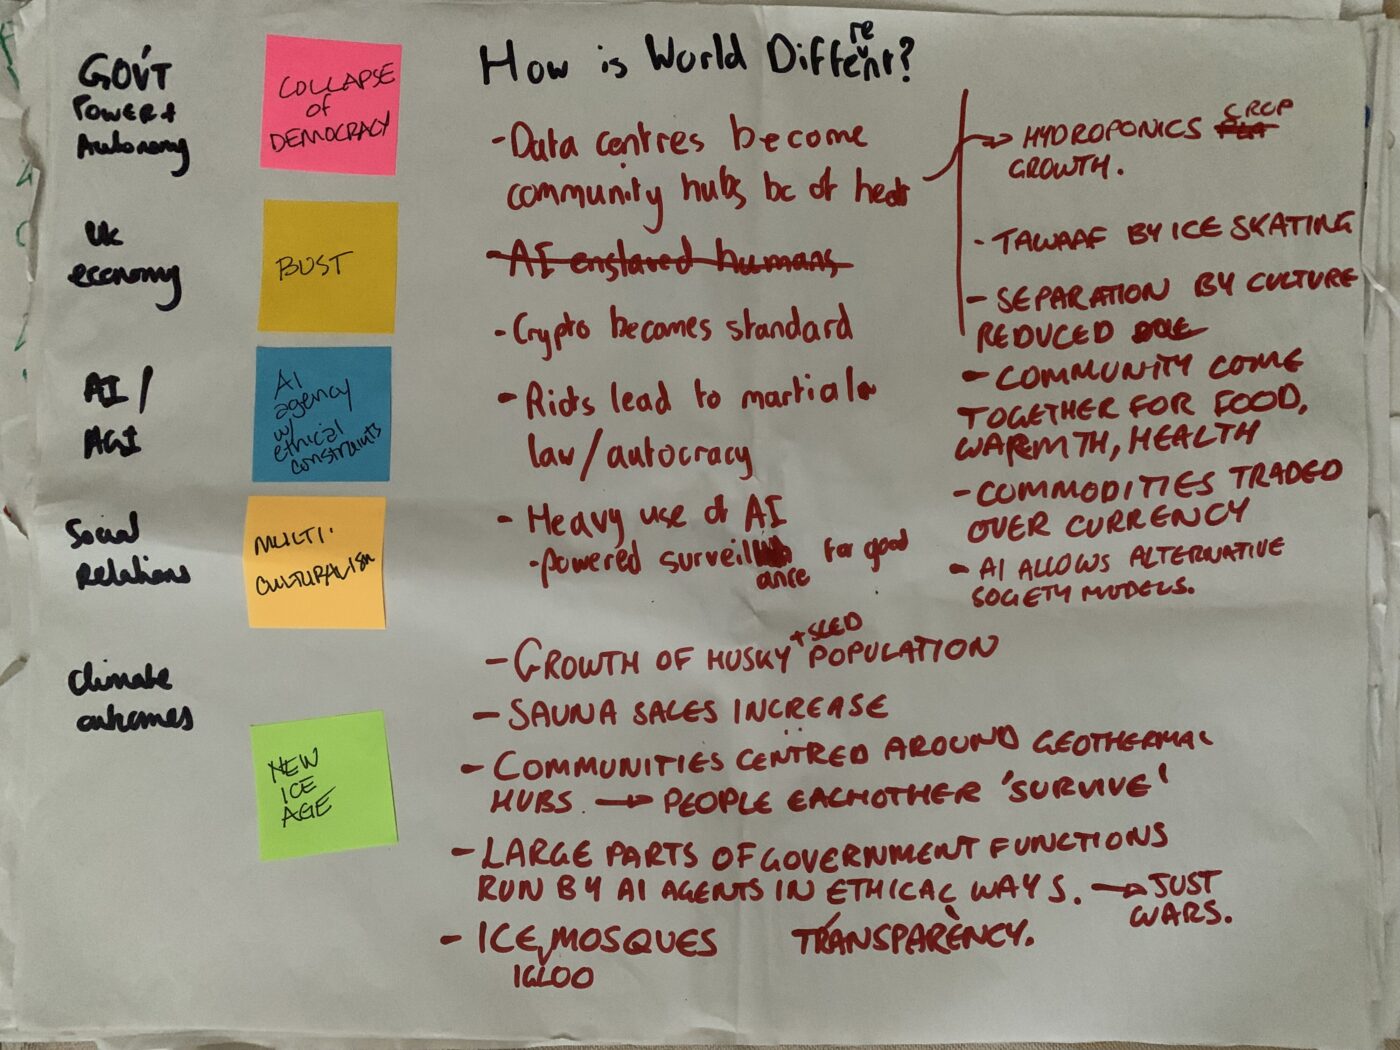 GOV'T
POWER +
Autonomy
COLLAPSE
OF
DEMOCRACY
UK
economy
BUST
AI /
AGI
AI
agency
w/
ethical
constraints
Social
Relations
MULTI-
CULTURALISM
Climate
outcomes
NEW
ICE
AGE
How is World Different?
- Data centres become
community hubs bc of heat
- AI enslaved humans
- Crypto becomes standard
- Riots lead to martial
law/autocracy
- Heavy use of AI
- powered surveillance for good
- GROWTH OF HUSKY + SLED POPULATION
- SAUNA SALES INCREASE
- COMMUNITIES CENTRED AROUND GEOTHERMAL
HUBS. → PEOPLE EACHOTHER 'SURVIVE'
- LARGE PARTS OF GOVERNMENT FUNCTIONS
RUN BY AI AGENTS IN ETHICAL WAYS. → JUST
WARS.
TRANSPARENCY.
- ICE IGLOO MOSQUES
→ HYDROPONICS CROP
GROWTH.
- TAWAAF BY ICE SKATING
- SEPARATION BY CULTURE
REDUCED
- COMMUNITY COME
TOGETHER FOR FOOD,
WARMTH, HEALTH
- COMMODITIES TRADED
OVER CURRENCY
- AI ALLOWS ALTERNATIVE
SOCIETY MODELS.